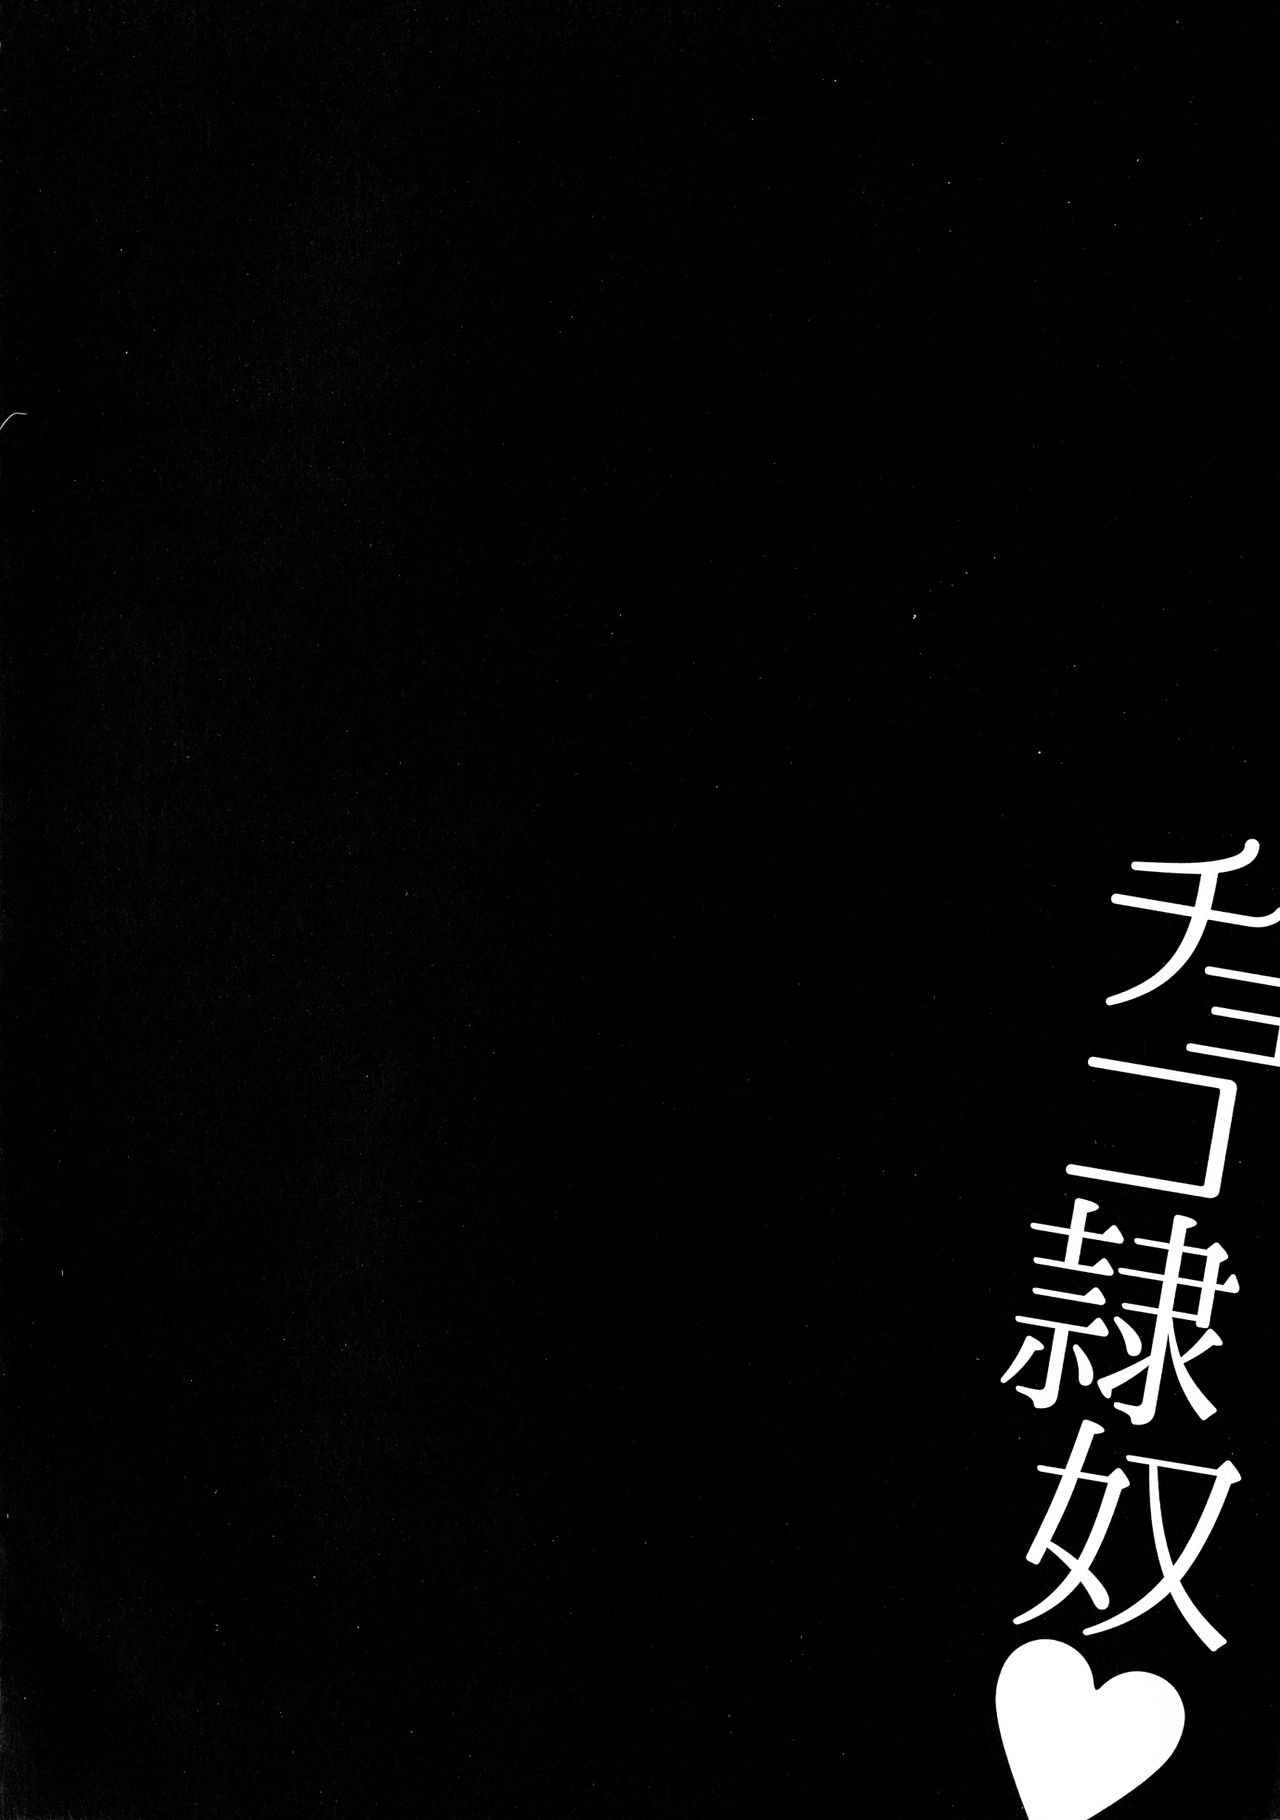 チョコ隷奴♥